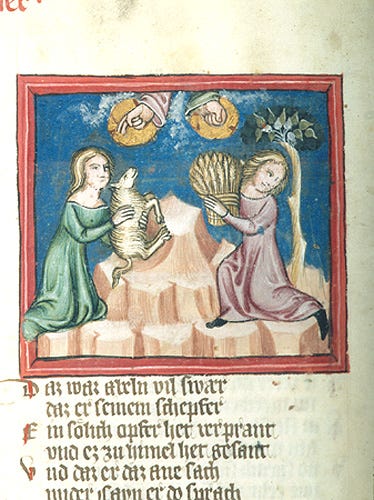 Daz waz abeln vil swar
daz er seinem schepfer
Ein solich opfer het verprant
vnd ez zu himel het gesant
Vnd daz er daz ane sach
wider er do sprach